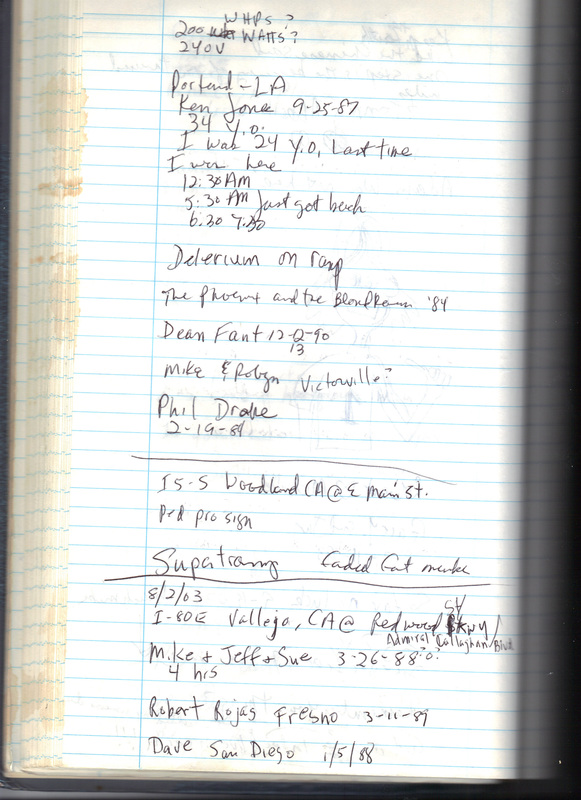 WHPS?
200 WATTS?
240V
Portland - LA
Ken Jones 9-25-87
34 Y.O.
I was 24 Y.O, Last time
I was here
12:30 AM
5:30 AM Just got back
6:30 7:30
Delerium on ramp
The Phoenix and the '84
Dean Fant 12-2-90
13
Mike & Robyn Victorville?
Phil Drake
2-19-81
I5-S Woodland CA @ E Main St.
Ped pro sign
Supertramp
8/2/03
I-80E Vallejo, CA @ Redwood PKWY/
St
Admiral Callaghan/Blvd
Mike + Jeff + Sue 3-26-88?0?
4 hrs
Robert Rojas Fresno 3-11-89
Dave San Diego 1/5/88